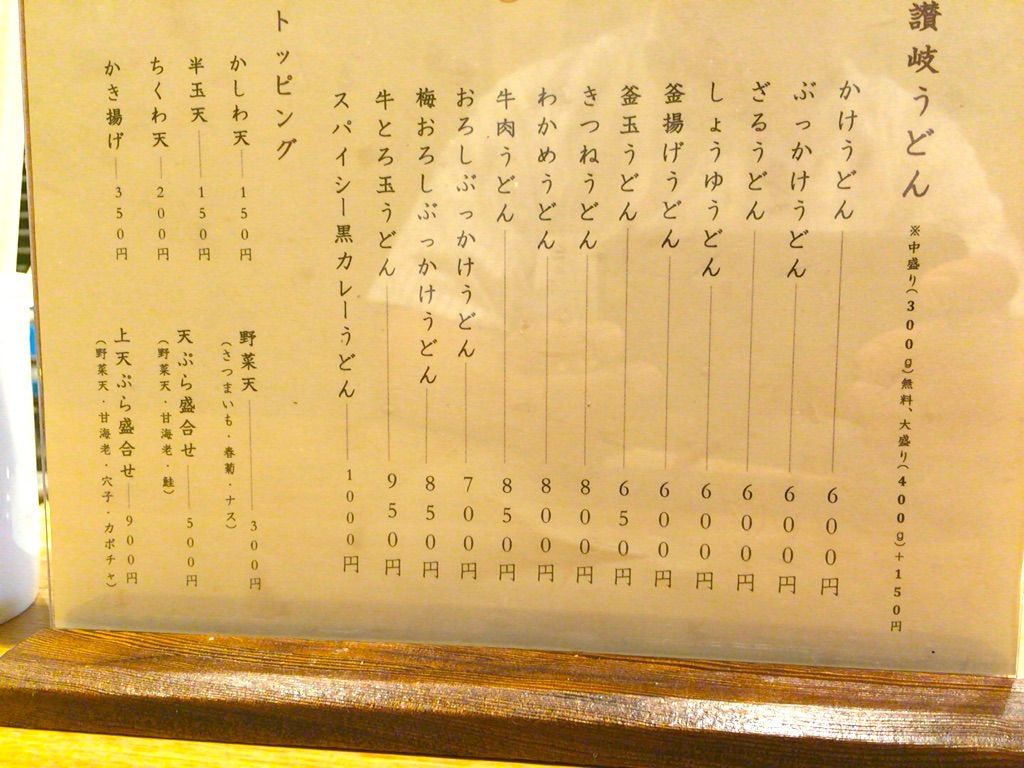 讃岐うどん ※中盛り(300g)無料、大盛り(400g)+150円
かけうどん 600円
ぶっかけうどん 600円
ざるうどん 600円
しょうゆうどん 600円
釜揚げうどん 600円
釜玉うどん 650円
きつねうどん 800円
わかめうどん 800円
牛肉うどん 850円
おろしぶっかけうどん 700円
梅おろしぶっかけうどん 850円
牛とろ玉うどん 950円
スパイシー黒カレーうどん 1000円
トッピング
かしわ天 150円
半玉天 150円
ちくわ天 200円
かき揚げ 350円
野菜天 300円
(さつまいも・春菊・ナス)
天ぷら盛合せ 500円
(野菜天・甘海老・鮭)
上天ぷら盛合せ 900円
(野菜天・甘海老・穴子・カボチャ)